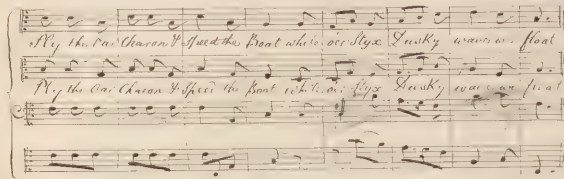 Ply the Oar Charon & speed the Boat while o'er Styx Dusky waves we float
Ply the Oar Charon & Speed the Boat while o'er Styx Dusky waves we float